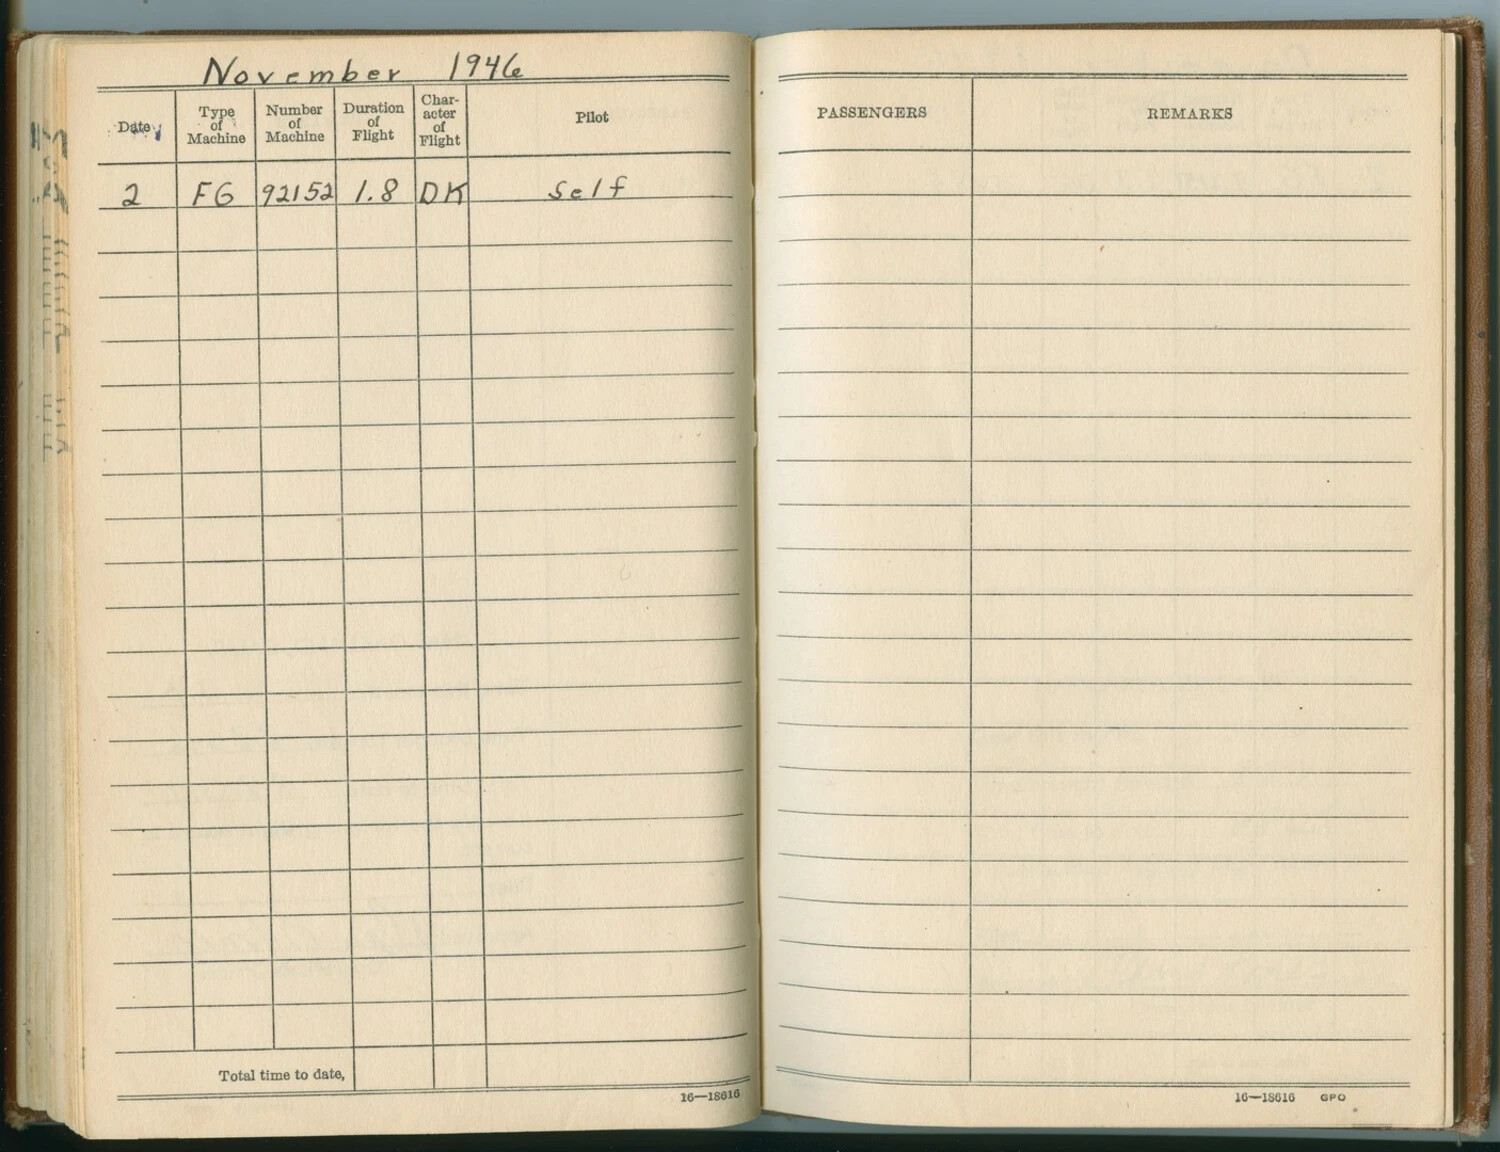 November 1946
Date Type of Machine Number of Machine Duration of Flight Char- acter of Flight Pilot PASSENGERS REMARKS
2 FG 92152 1.8 DK Self
Total time to date,
16—18616
16—18616 GPO